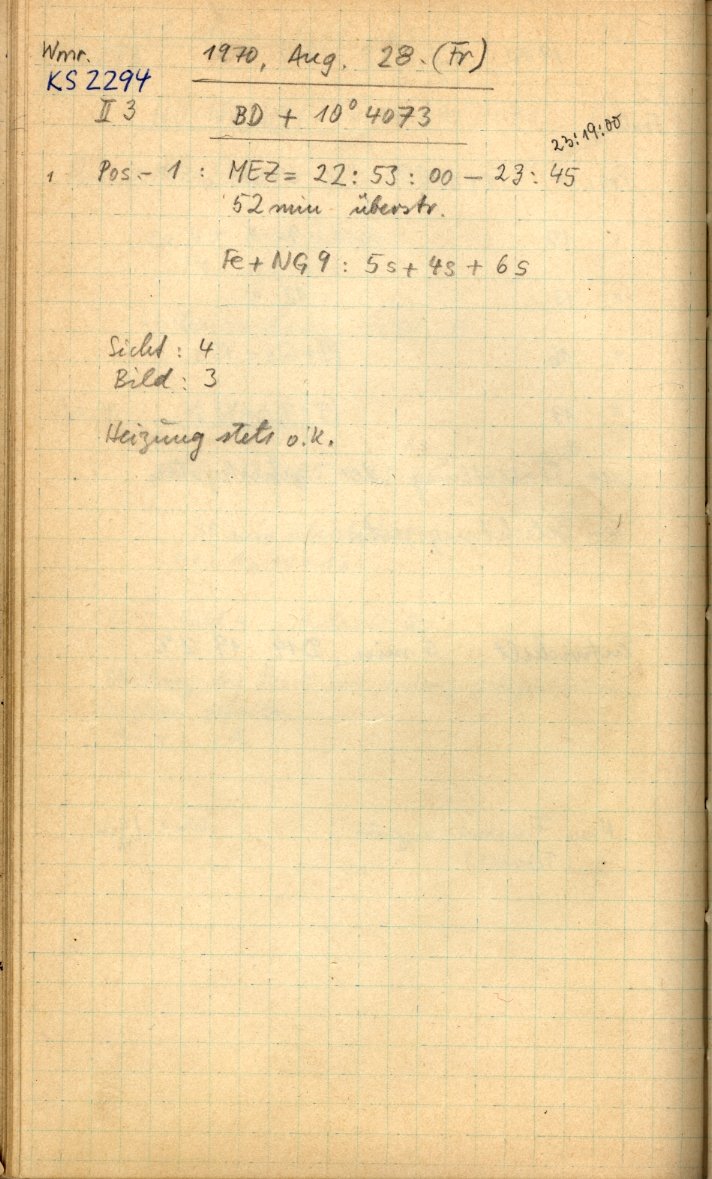 Wmr. 1970, Aug. 28. (Fr)
KS 2294
II 3 BD + 10° 4073
23:19:00
1 Pos.- 1 : MEZ = 22:53:00 – 23:45
52 min überstr.
Fe + NG 9 : 5s + 4s + 6s
Sicht : 4
Bild : 3
Heizung stets o.k.